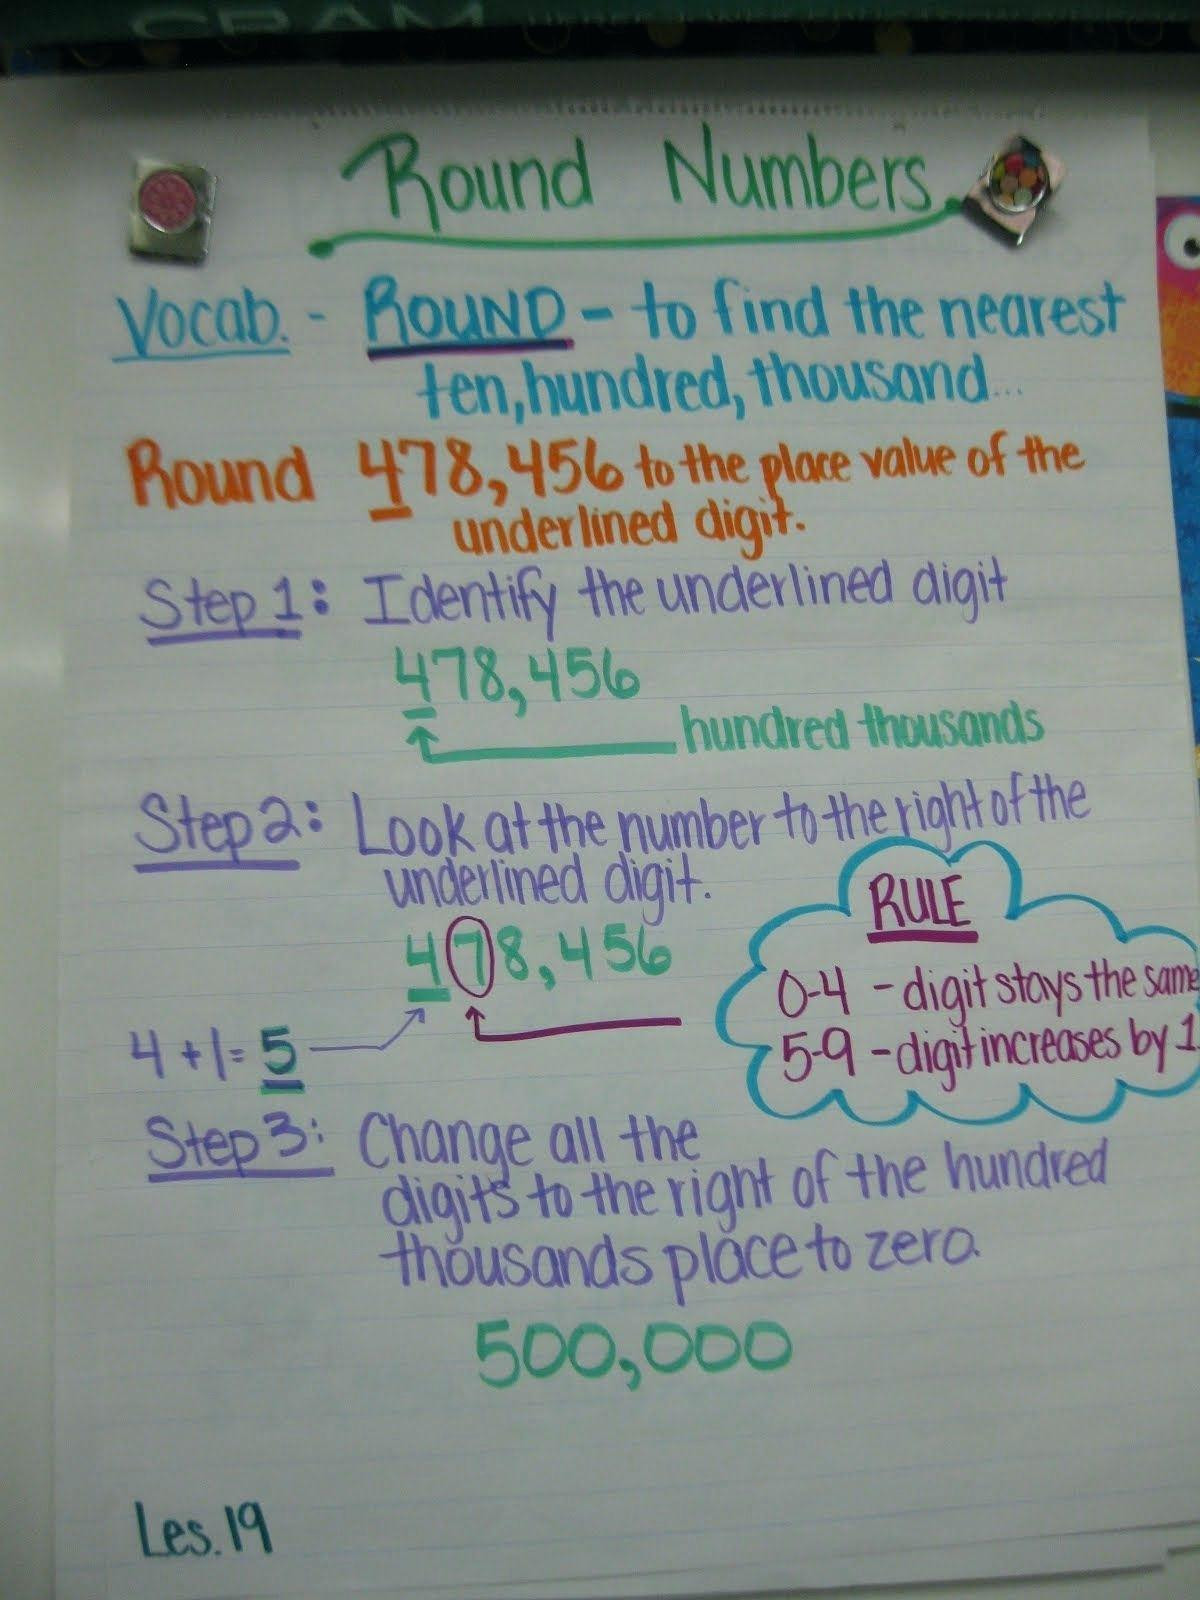 CRAM
Round Numbers
Vocab. - ROUND - to find the nearest
ten, hundred, thousand...
Round 478,456 to the place value of the
underlined digit.
Step 1: Identify the underlined digit
478,456
hundred thousands
Step 2: Look at the number to the right of the
underlined digit.
478,456
4+1= 5
RULE
0-4 - digit stays the same
5-9 - digit increases by 1
Step 3: Change all the
digits to the right of the hundred
thousands place to zero.
500,000
Les. 19